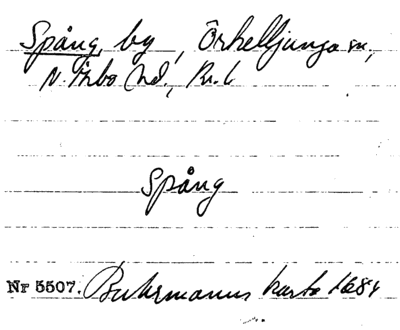 Spång, by, Örkelljunga sn,
N. Åsbo hd., Kr. l
Spång
Nr 5507. Buhrmanns karta 1684